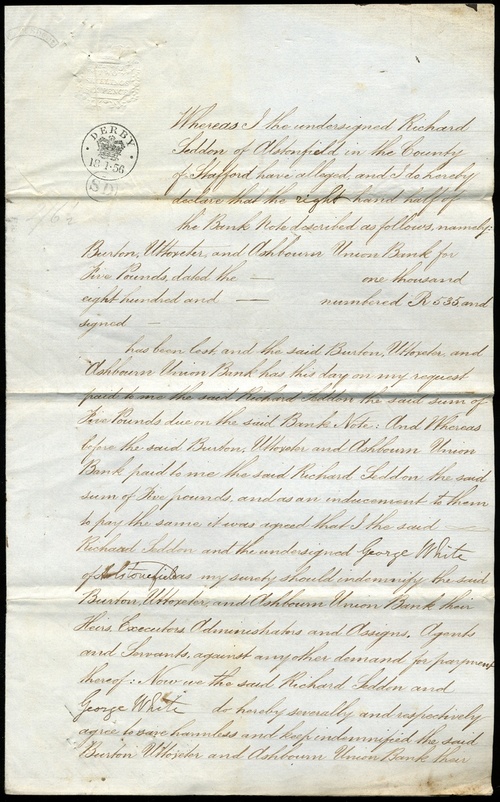 DERBY
18·1·56
Whereas I the undersigned Richard
Seddon of Alstonfield in the County
of Stafford have alleged, and I do hereby
declare that the right hand half of
the Bank Note described as follows, namely:
Burton, Uttoxeter, and Ashbourn Union Bank for
Five Pounds, dated the — one thousand
eight hundred and — numbered R 535 and
signed —
has been lost, and the said Burton, Uttoxeter, and
Ashbourn Union Bank has this day on my request
paid to me the said Richard Seddon the said sum of
Five Pounds due on the said Bank Note: And Whereas
before the said Burton, Uttoxeter and Ashbourn Union
Bank paid to me the said Richard Seddon the said
sum of Five pounds, and as an inducement to them
to pay the same it was agreed that I the said
Richard Seddon and the undersigned George White
of Alstonefield as my surety should indemnify the said
Burton, Uttoxeter, and Ashbourn Union Bank their
Heirs, Executors Administrators and Assigns, Agents
and Servants, against any other demand for payment
thereof: Now we the said Richard Seddon and
George White do hereby severally and respectively
agree to save harmless and keep indemnified the said
Burton Uttoxeter and Ashbourn Union Bank their